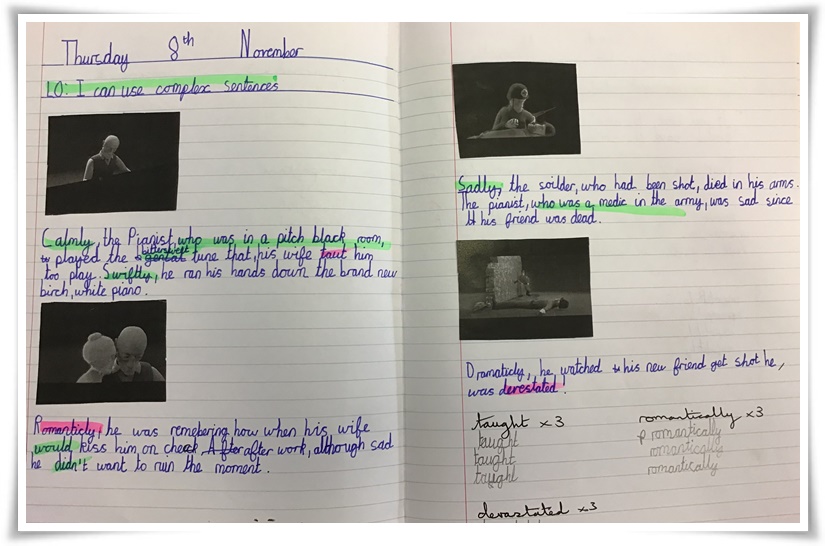 Thursday 8th November
LO: I can use complex sentences
Calmly, the Pianist, who was in a pitch black room,
played the bittersweet tune that, his wife taut him
too play. Swiftly, he ran his hands down the brand new
birch, white piano.
Romanticly, he was remebering how when his wife
would kiss him on cheak. After after work, although sad
he didn't want to ruin the moment.
Sadly, the soilder, who had been shot, died in his arms.
The pianist, who was a medic in the army, was sad since
his friend was dead.
Dramaticly, he watched his new friend get shot he,
was derestated.
taught x3 romantically x3
taught romantically
taught romantically
taught romantically
devastated x3